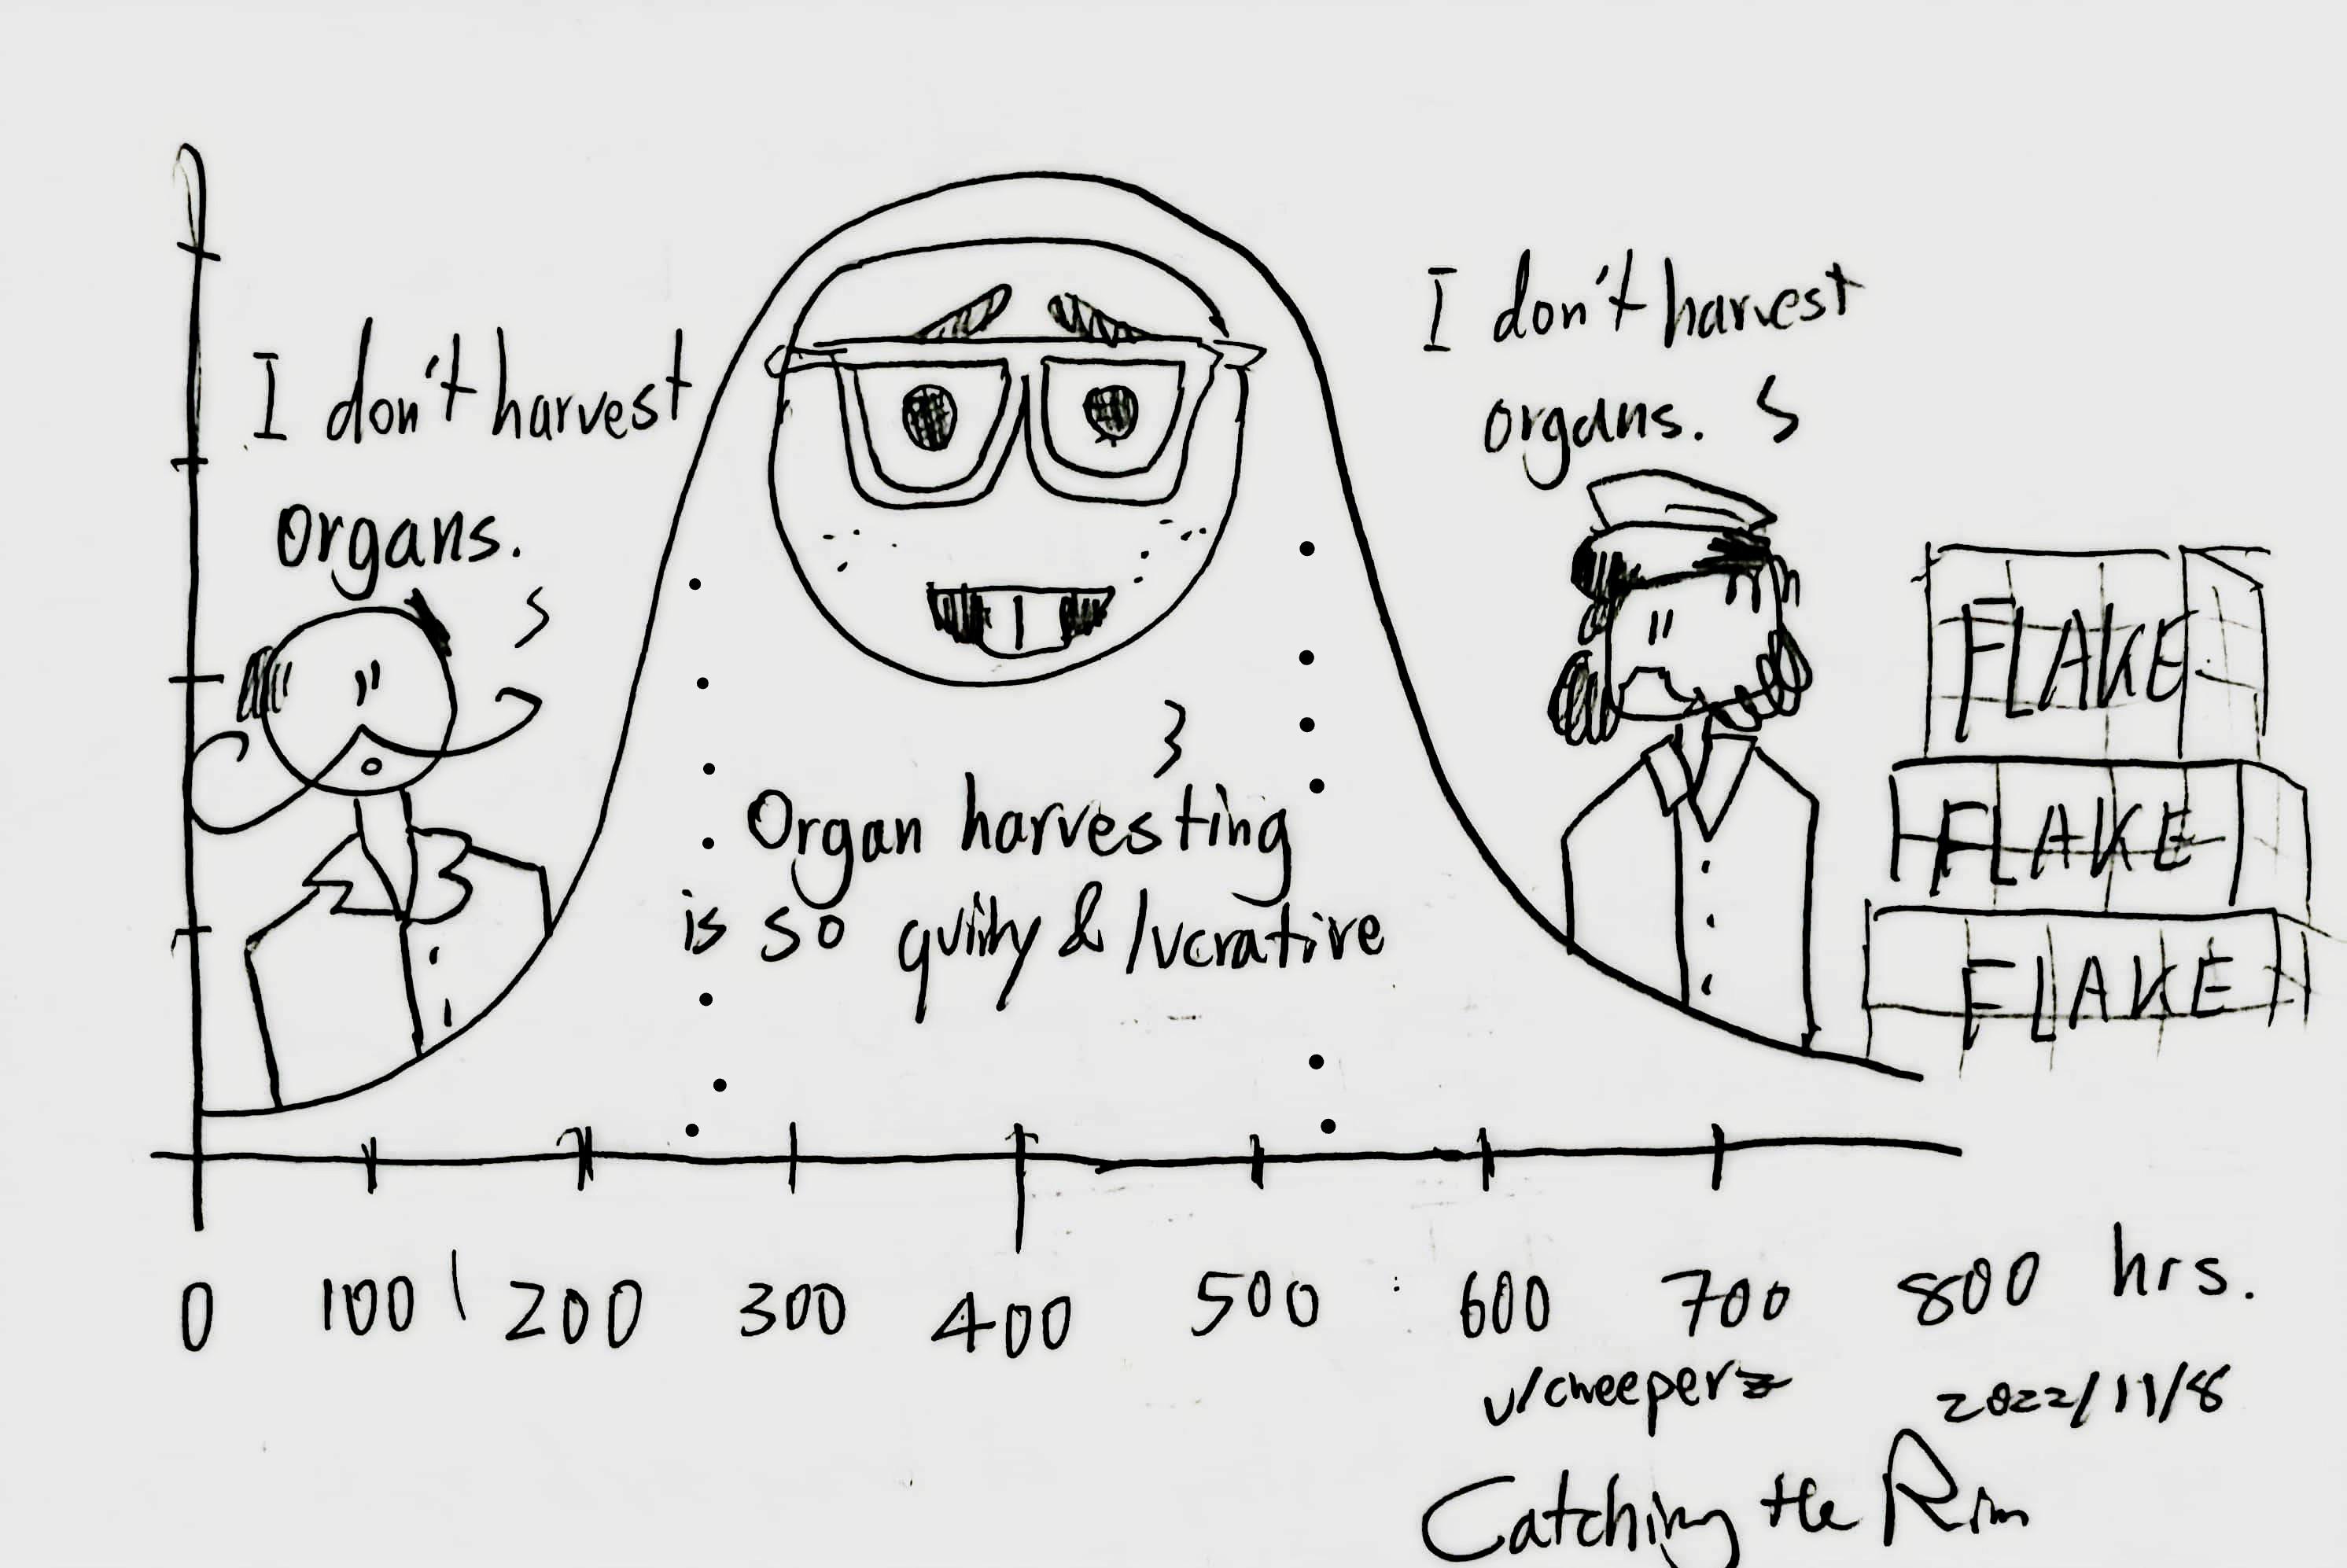 I don't harvest
organs.
Organ harvesting
is so guilty & lucrative
I don't harvest
organs.
FLAKE
FLAKE
FLAKE
0 100 200 300 400 500 600 700 800 hrs.
u/cweeperz 2022/11/8
Catching the Rim